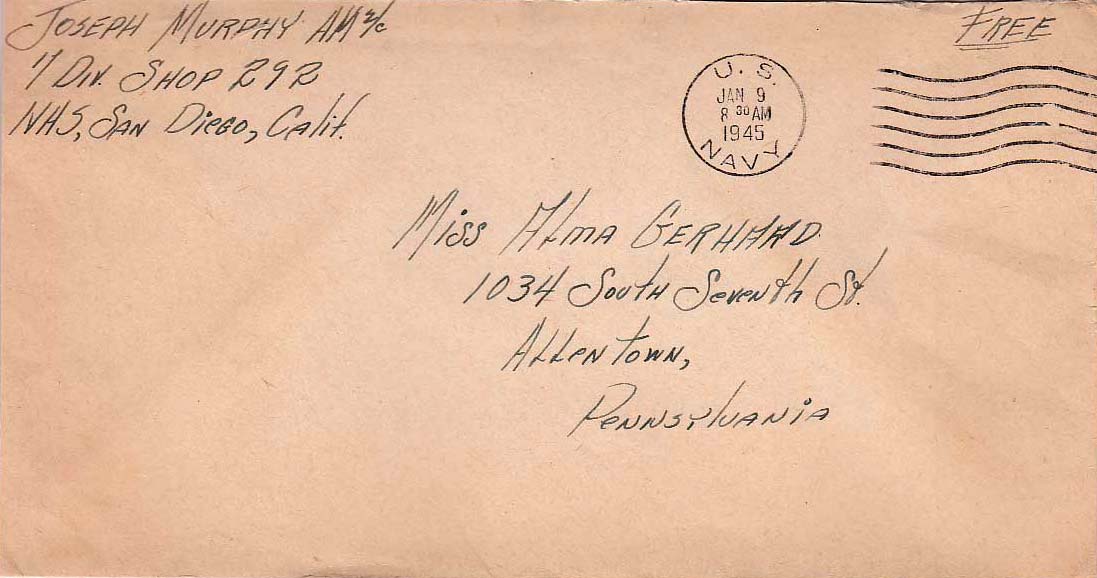 Joseph Murphy AM 2/c
17 Div. Shop 292
NAS, San Diego, Calif.
Free
U. S.
JAN 9
8 30 AM
1945
NAVY
Miss Alma Gerhard
1034 South Seventh St.
Allentown,
Pennsylvania